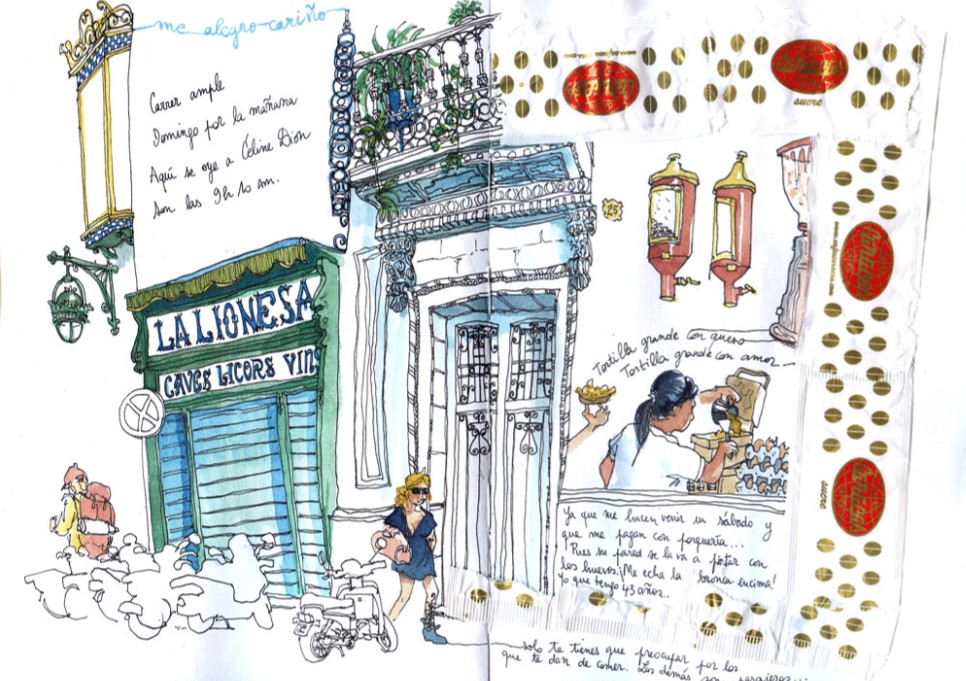 me alegro cariño
Carrer ample
Domingo por la mañana
Aquí se oye a Céline Dion
son las 9h 10 am.
LA LIONESA
CAVES LICORS VINS
25
sucre
Tortilla grande con queso
Tortilla grande con amor
sucre
Ya que me hacen venir un sábado y
que me pagan con porquería...
Pues su pared se la va a pintar con
los huevos. ¡Me echa la bronca encima!
Yo que tengo 43 años.
solo te tienes que preocupar por los
que te dan de comer. Los demás son pasajeros...